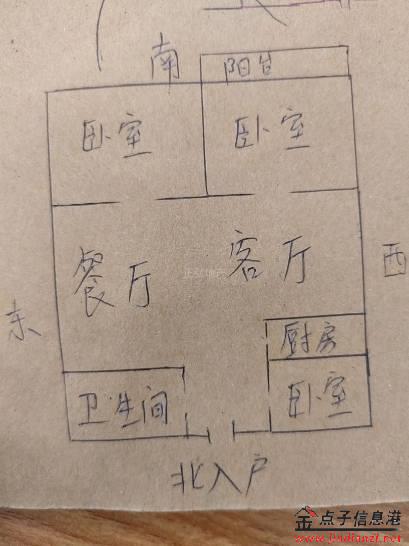 南
阳台
卧室
卧室
餐厅
客厅
东
西
厨房
卫生间
卧室
北入户
金点子信息港
www.jindianzi.net